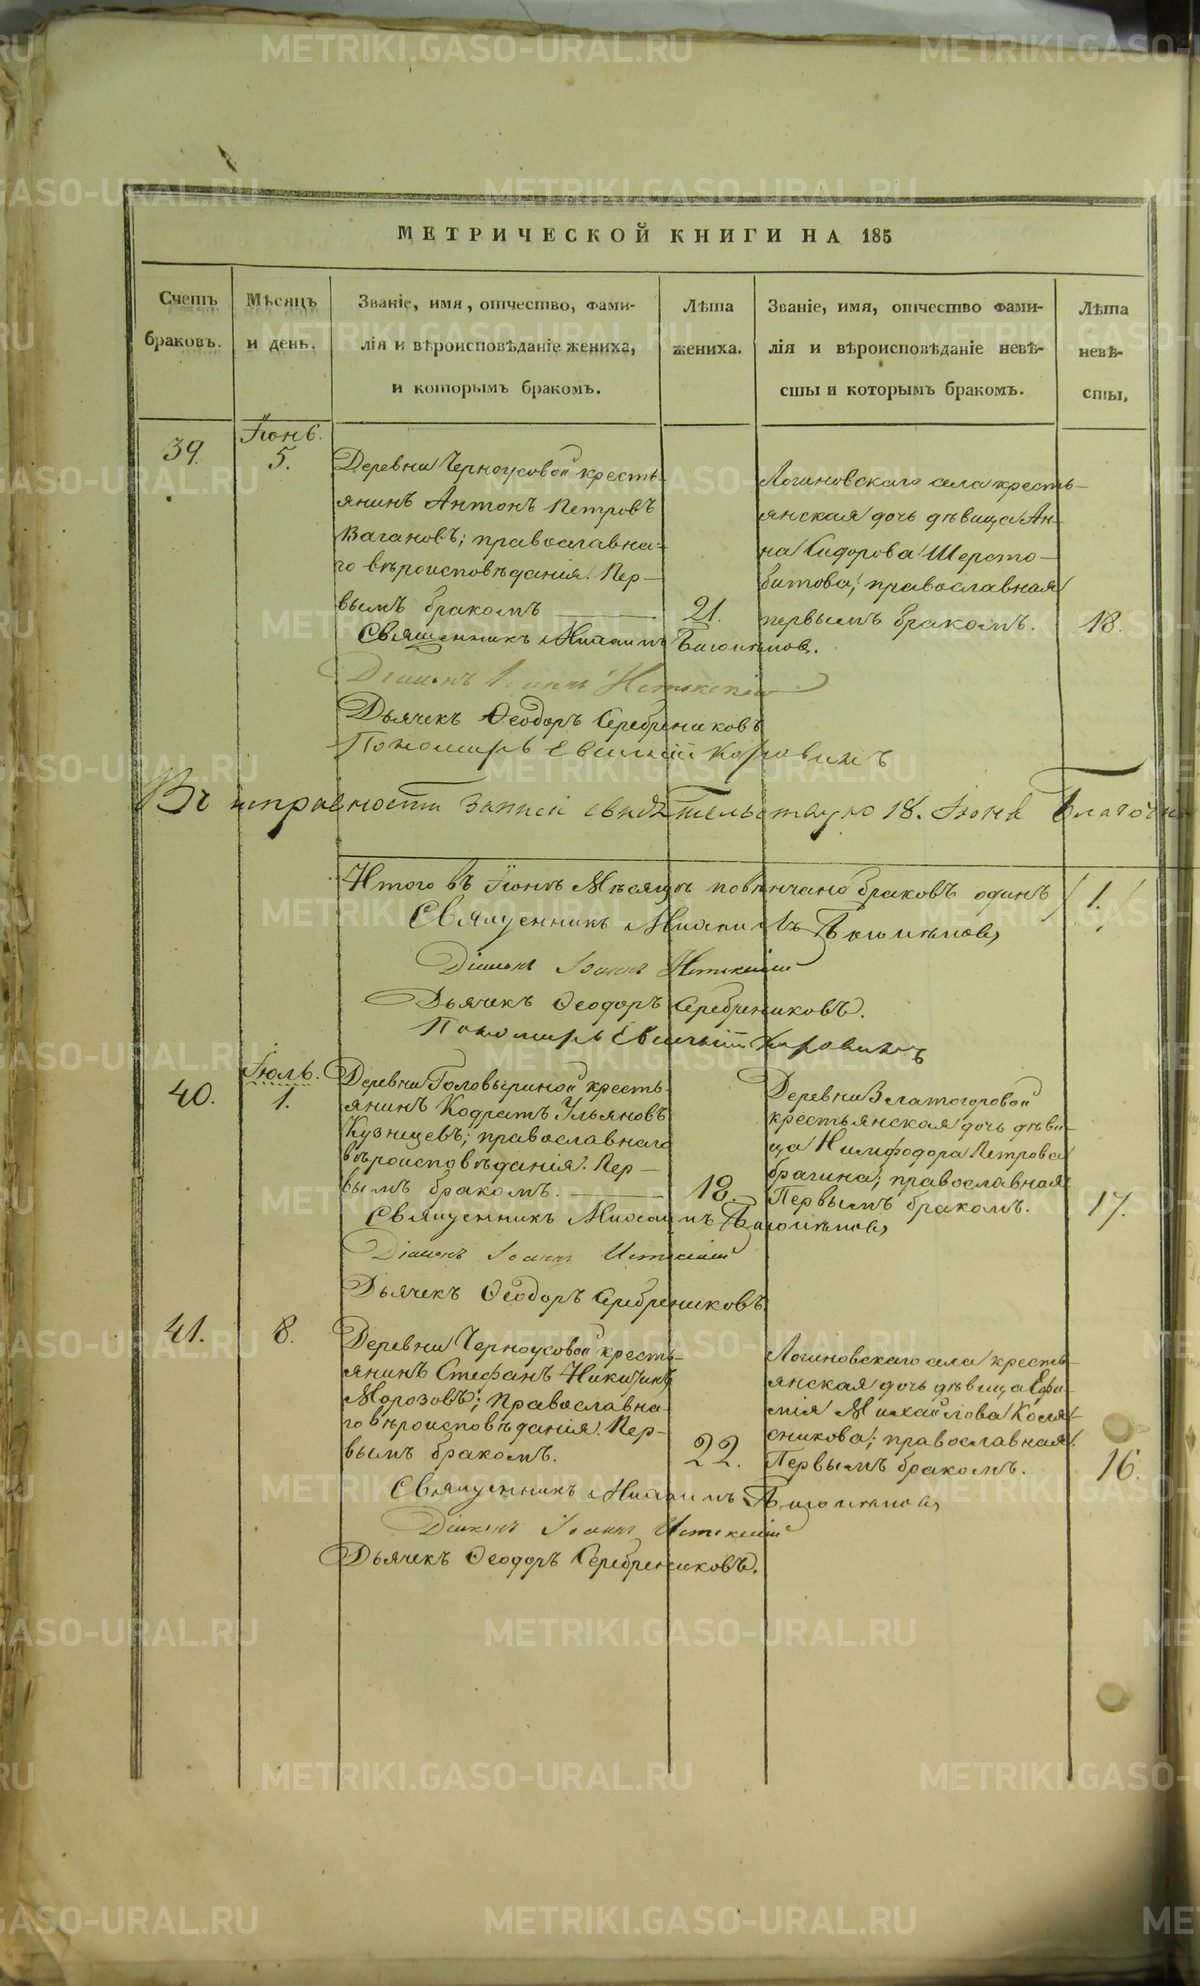 МЕТРИЧЕСКОЙ КНИГИ НА 185
Счетъ
браковъ.
Мѣсяцъ
и день.
Званіе, имя, отчество, фами-
лія и вѣроисповѣданіе жениха,
и которымъ бракомъ.
Лѣта
жениха.
Званіе, имя, отчество фами-
лія и вѣроисповѣданіе невѣ-
сты и которымъ бракомъ.
Лѣта
невѣ-
сты.
39.
Іюнь.
5.
Деревни Черноусовой кресть-
янинъ Антонъ Петровъ
Вагановъ; православна-
го вѣроисповѣданія. Пер-
вымъ бракомъ
21.
Логиновскаго села кресть-
янская дочь дѣвица Ан-
на Сидорова Шерсто-
битова; православная
первымъ бракомъ.
18.
Священникъ Михаилъ
Діаконъ Іоаннъ
Дьячекъ Ѳеодоръ Серебрениковъ
Пономарь Евгеній Коровинъ
Въ исправности записи свидѣтельствую 18. Іюня Благочин
Итого въ Іюнѣ Мѣсяцѣ повѣнчано браковъ одинъ /1./
Священникъ Михаилъ
Діаконъ Іоаннъ
Дьячекъ Ѳеодоръ Серебрениковъ.
Пономарь Евгеній Коровинъ
40.
Іюль.
1.
Деревни Головыриной кресть-
янинъ Кодратъ Ульяновъ
Кузнецевъ; православнаго
вѣроисповѣданія. Пер-
вымъ бракомъ.
18.
Деревни Златогоровой
крестьянская дочь дѣви-
ца Нимфодора Петрова
Брагина; православная
Первымъ бракомъ.
17.
Священникъ Михаилъ
Діаконъ Іоаннъ
Дьячекъ Ѳеодоръ Серебрениковъ
41.
8.
Деревни Черноусовой кресть-
янинъ Стефанъ Никитинъ
Морозовъ; Православна-
го вѣроисповѣданія. Пер-
вымъ бракомъ.
22.
Логиновскаго села кресть-
янская дочь дѣвица Ефи-
мія Михайлова Коля-
сникова; православная.
Первымъ бракомъ.
16.
Священникъ Михаилъ
Діаконъ Іоаннъ
Дьячекъ Ѳеодоръ Серебрениковъ.
METRIKI.GASO-URAL.RU